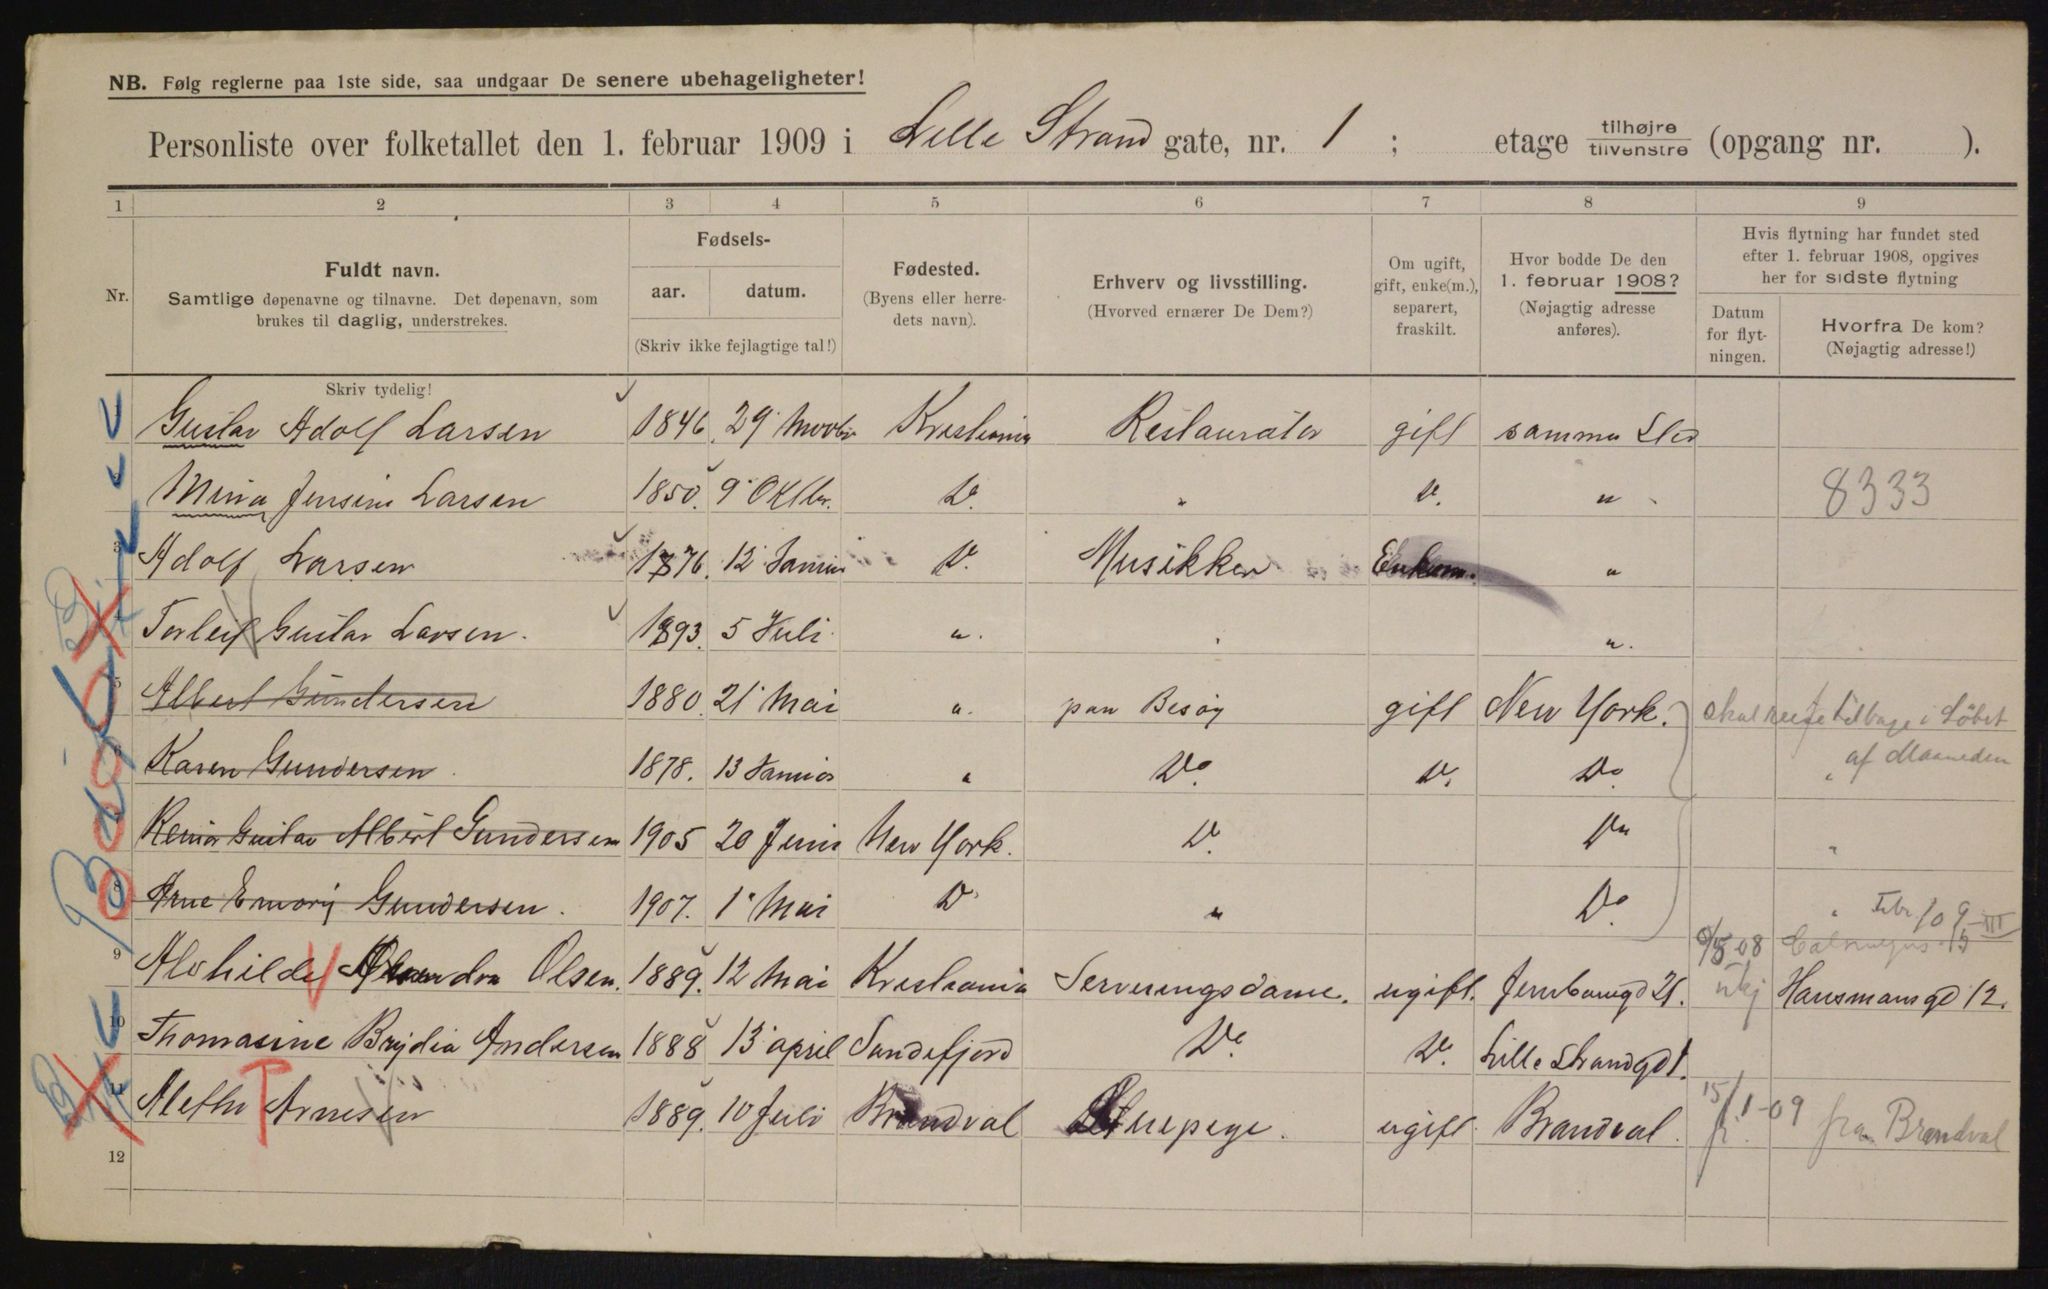 NB. Følg reglerne paa 1ste side, saa undgaar De senere ubehageligheter!
Personliste over folketallet den 1. februar 1909 i Lille Strand gate, nr. 1 ; etage tilhøjre tilvenstre (opgang nr. ).
1 2 3 4 5 6 7 8 9
Nr.
Fuldt navn.
Samtlige døpenavne og tilnavne. Det døpenavn, som
brukes til daglig, understrekes.
Fødsels-
aar. datum.
(Skriv ikke fejlagtige tal!)
Fødested.
(Byens eller herre-
dets navn).
Erhverv og livsstilling.
(Hvorved ernærer De Dem?)
Om ugift,
gift, enke(m.),
separert,
fraskilt.
Hvor bodde De den
1. februar 1908?
(Nøjagtig adresse
anføres).
Hvis flytning har fundet sted
efter 1. februar 1908, opgives
her for sidste flytning
Datum
for flyt-
ningen.
Hvorfra De kom?
(Nøjagtig adresse!)
Skriv tydelig!
Gustav Adolf Larsen 1846 29 Novbr Kristiania Restauratør gift samme Sted
2 Mina Jensine Larsen 1850. 9 Oktbr. Do. " Do. " 8333
3 Adolf Larsen 1876. 12 Januar Do. Musikker Enkem. "
4 Torleif Gustav Larsen. 1893. 5 Juli. " " ".
5 Albert Gundersen 1880. 21 Mai " paa Besøg gift New York. skal reise tilbage i Løbet
6 Karen Gundersen. 1878. 13 Januar " Do. Do. Do. " af Maaneden
Gustav Albert Gundersen 1905 20 Juni New York. Do. Do "
8 Arne Gundersen. 1907. 1 Mai Do " Do. " Febr. 09
9 Alvhilde Olsen. 1889. 12 Mai Kristiania Serveringsdame. ugift. Jernbanegd 21. Hausmansgd 12.
10 Thomasine Andersen 1888 13 april Sandefjord Do. Do. Lille Strandgd 1.
11 Alethe Arnesen 1889. 10 Juli Brandval Kokkepige. ugift. Brandval. 15/1-09 fra Brandval
12